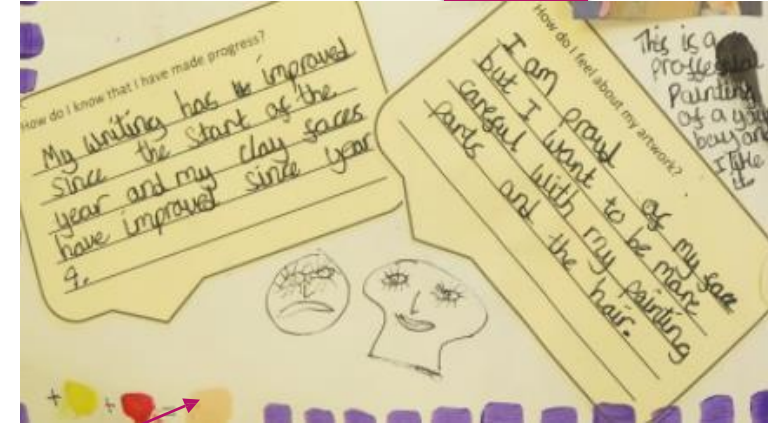 How do I know that I have made progress?
My writing has improved
since the start of the
year and my clay faces
have improved since year
4.
How do I feel about my artwork?
I am proud of my face
but I want to be more
careful with my painting
parts and the hair.
This is a
proffesional
Painting
of a young
boy and
I like
it.
+ + =